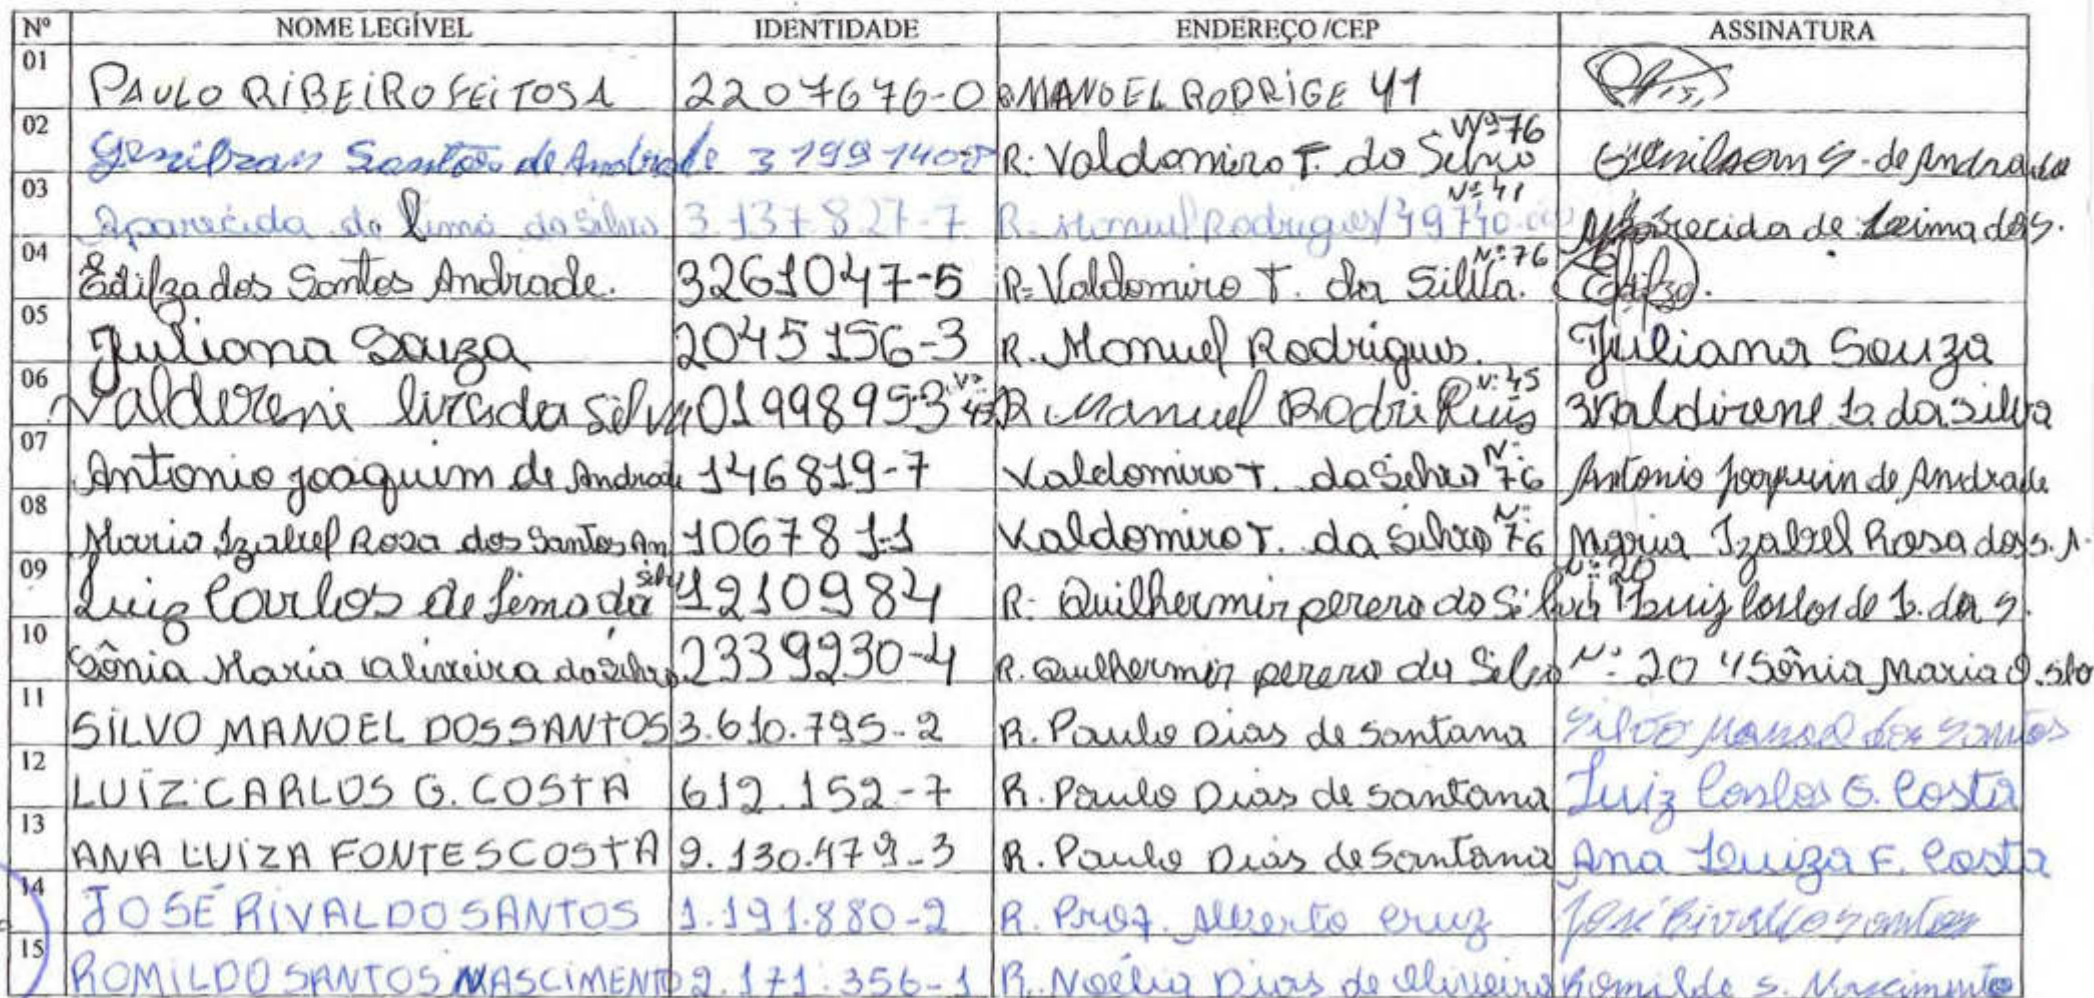 Nº NOME LEGÍVEL IDENTIDADE ENDEREÇO /CEP ASSINATURA
01 PAULO RIBEIRO FEITOSA 2207676-0 MANOEL RODRIGE 41
02 Genilzan Santos de Andrade R: Valdomiro T. da Silva Nº 76 Genilson S. de Andrade
03 Aparecida de Lima da Silva 3.137827-7 R. Manuel Rodrigues Nº 41 Aparecida de Leima da S.
04 Edilza dos Santos Andrade. 3261047-5 R= Valdomiro T. da Silva. Nº 76 Edilza.
05 Juliana Souza 2045156-3 R. Manuel Rodrigues. Juliana Souza
06 Valderene lira da Silva 01998953 R Manuel Nº 45 Valdirene L. da Silva
07 Antonio joaquim de Andrade 146819-7 Valdomiro T. da Silva Nº 76 Antonio Joaquin de Andrade
08 Maria Izabel Rosa dos Santos An 1067811 Valdomiro T. da Silva Nº 76 Maria Izabel Rosa dos S. A.
09 Luiz Carlos de Lima da Silva 1210984 R: Quilhermir perera da Silva Nº 20 Luiz Carlos de L. da S.
10 Sônia Maria Oliveira da Silva 2339230-4 R. Quilhermir perera da Silva Nº 20 Sônia Maria O.
11 SILVO MANOEL DOS SANTOS 3.610.795-2 R. Paulo Dias de Santana Silvo Manoel dos Santos
12 LUIZ CARLOS G. COSTA 612.152-7 R. Paulo Dias de Santana Luiz Carlos G. Costa
13 ANA LUIZA FONTES COSTA 9.130.479-3 R. Paulo Dias de Santana Ana Luiza F. Costa
14 JOSÉ RIVALDO SANTOS 1.191.880-2 R. Prof. Alberto Cruz José Rivaldo Santos
15 ROMILDO SANTOS NASCIMENTO 2.171.356-1 R. Noélia Dias de Oliveira Romildo S. Nascimento